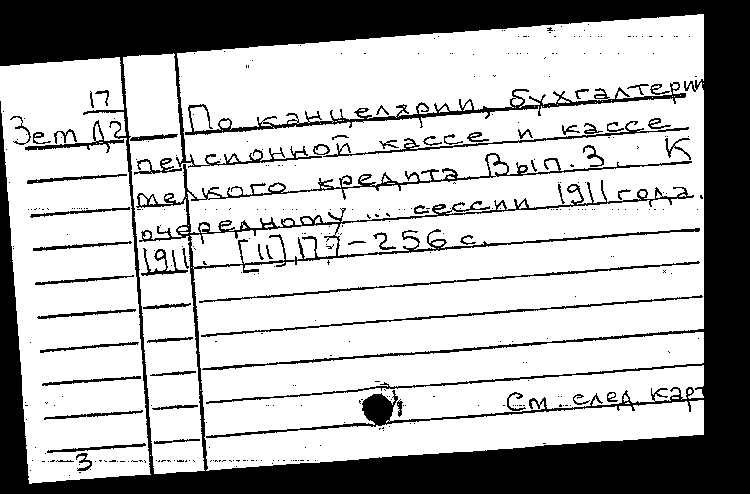 17
Зем Д2
По канцелярии, бухгалтерии
пенсионной кассе и кассе
мелкого кредита Вып. 3. К
очередному ... сессии 1911 года.
1911. [II], 177-256 с.
См. след. карт
3